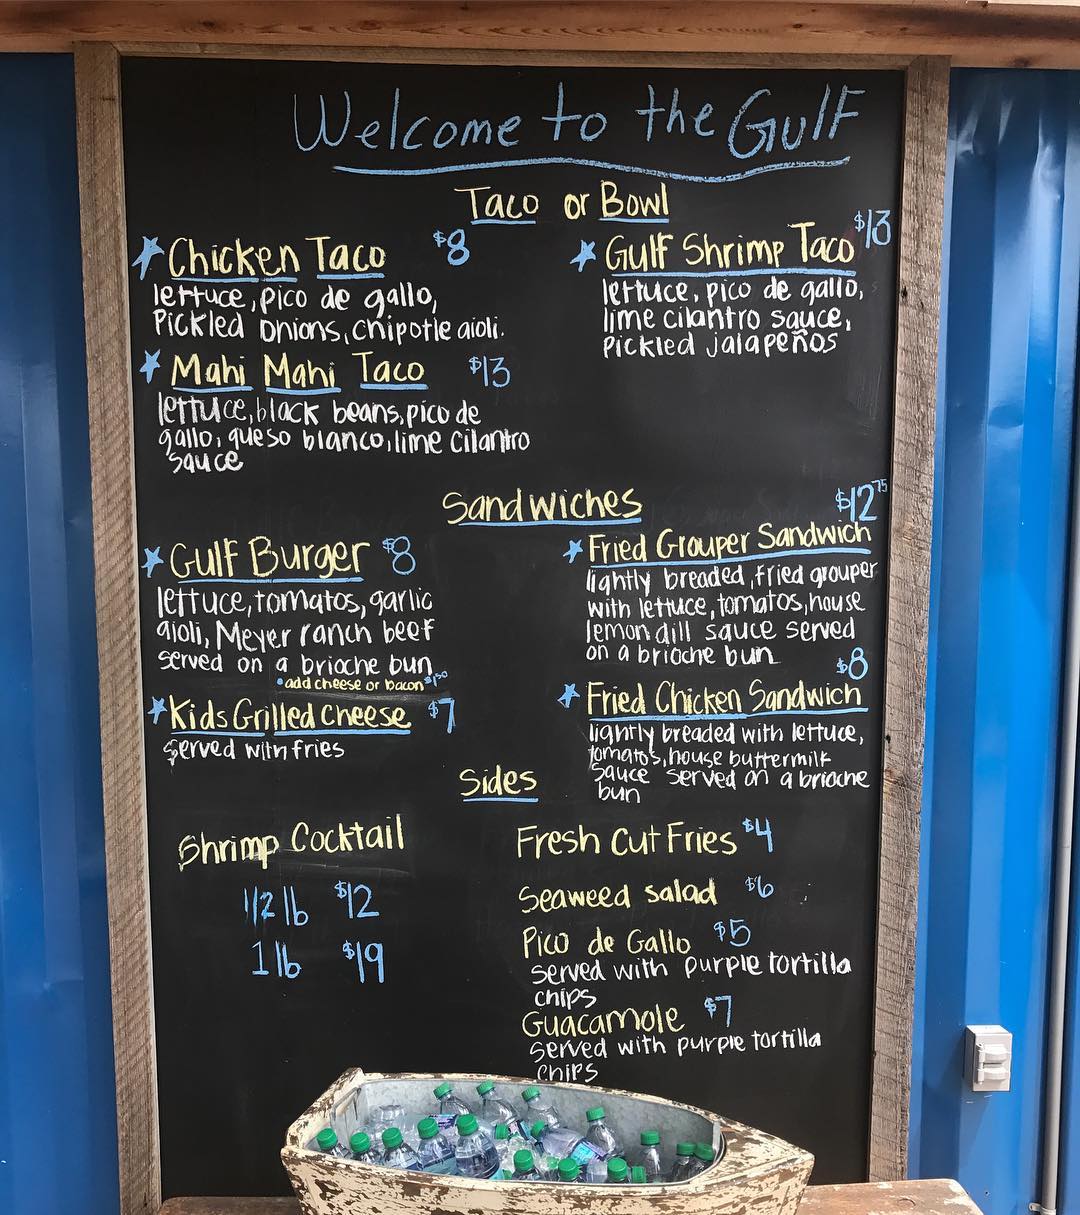 Welcome to the Gulf
Taco or Bowl
Chicken Taco $8
lettuce, pico de gallo,
Pickled onions, chipotle aioli.
Mahi Mahi Taco $13
lettuce, black beans, pico de
gallo, queso blanco, lime cilantro
sauce
Gulf Shrimp Taco $13
lettuce, pico de gallo,
lime cilantro sauce,
Pickled jalapeños
Sandwiches
Gulf Burger $8
lettuce, tomatos, garlic
aioli, Meyer ranch beef
served on a brioche bun
•add cheese or bacon $1.50
Kids Grilled Cheese $7
served with fries
$12.75
Fried Grouper Sandwich
lightly breaded, fried grouper
with lettuce, tomatos, house
lemon dill sauce served
on a brioche bun
$8
Fried Chicken Sandwich
lightly breaded with lettuce,
tomatos, house buttermilk
sauce served on a brioche
bun
Sides
Shrimp Cocktail
1/2 lb $12
1 lb $19
Fresh Cut Fries $4
Seaweed salad $6
Pico de Gallo $5
served with purple tortilla
chips
Guacamole $7
served with purple tortilla
chips